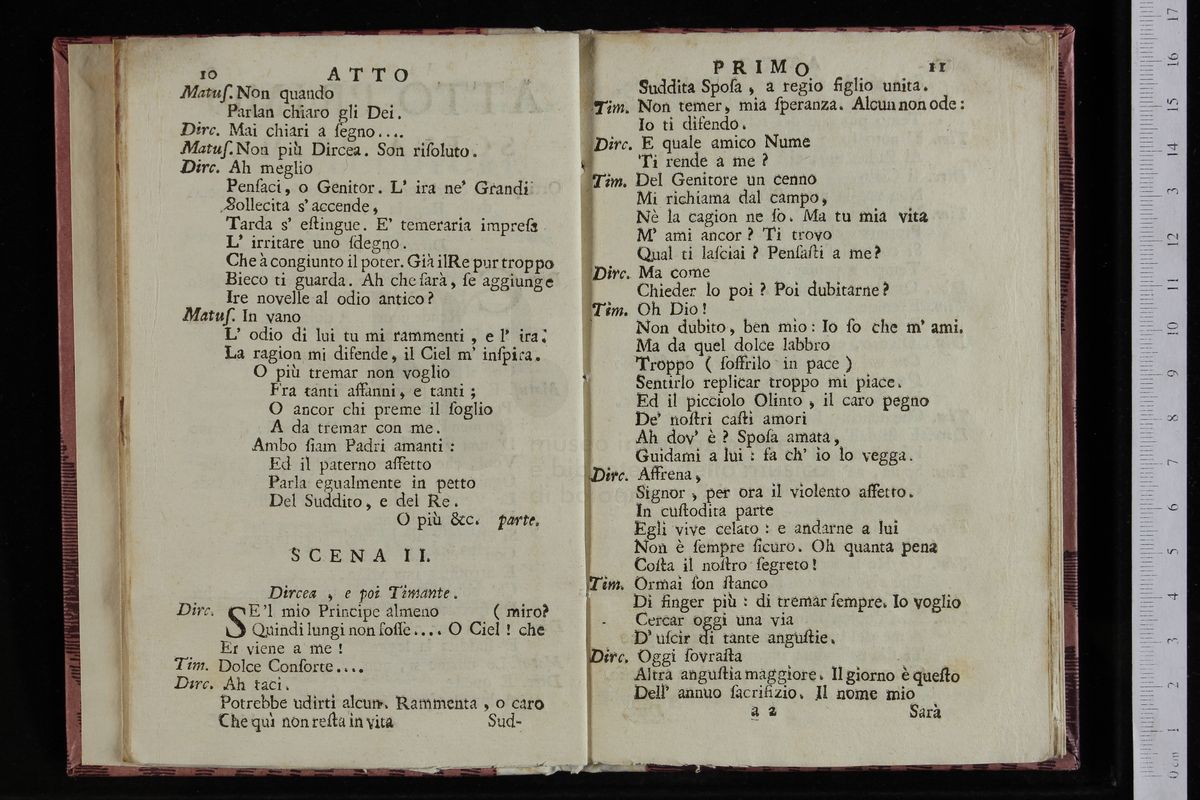 10 ATTO
Matuſ. Non quando
Parlan chiaro gli Dei.
Dirc. Mai chiari a ſegno....
Matuſ. Non più Dircea. Son riſoluto.
Dirc. Ah meglio
Penſaci, o Genitor. L' ira ne' Grandi
Sollecita s' accende,
Tarda s' eſtingue. E' temeraria impreſa
L' irritare uno ſdegno.
Che à congiunto il poter. Già il Re pur troppo
Bieco ti guarda. Ah che ſarà, ſe aggiunge
Ire novelle al odio antico?
Matuſ. In vano
L' odio di lui tu mi rammenti, e l' ira:
La ragion mi difende, il Ciel m' inſpira.
O più tremar non voglio
Fra tanti affanni, e tanti;
O ancor chi preme il ſoglio
A da tremar con me.
Ambo ſiam Padri amanti:
Ed il paterno affetto
Parla egualmente in petto
Del Suddito, e del Re.
O più &c. parte.
SCENA II.
Dircea, e poi Timante.
Dirc. SE'l mio Principe almeno (miro?
Quindi lungi non foſſe.... O Ciel! che
Er viene a me!
Tim. Dolce Conſorte....
Dirc. Ah taci.
Potrebbe udirti alcun. Rammenta, o caro
Che quì non reſta in vita Sud-
PRIMO 11
Suddita Spoſa, a regio figlio unita.
Tim. Non temer, mia ſperanza. Alcun non ode:
Io ti difendo.
Dirc. E quale amico Nume
Ti rende a me?
Tim. Del Genitore un cenno
Mi richiama dal campo,
Nè la cagion ne ſo. Ma tu mia vita
M' ami ancor? Ti trovo
Qual ti laſciai? Penſaſti a me?
Dirc. Ma come
Chieder lo poi? Poi dubitarne?
Tim. Oh Dio!
Non dubito, ben mio: Io ſo che m' ami.
Ma da quel dolce labbro
Troppo (ſoffrilo in pace)
Sentirlo replicar troppo mi piace.
Ed il picciolo Olinto, il caro pegno
De' noſtri caſti amori
Ah dov' è? Spoſa amata,
Guidami a lui: fa ch' io lo vegga.
Dirc. Affrena,
Signor, per ora il violento affetto.
In cuſtodita parte
Egli vive celato: e andarne a lui
Non è ſempre ſicuro. Oh quanta pena
Coſta il noſtro ſegreto!
Tim. Ormai ſon ſtanco
Di finger più: di tremar ſempre. Io voglio
Cercar oggi una via
D' uſcir di tante anguſtie.
Dirc. Oggi ſovraſta
Altra anguſtia maggiore. Il giorno è queſto
Dell' annuo ſacrifizio. Il nome mio
a 2 Sarà